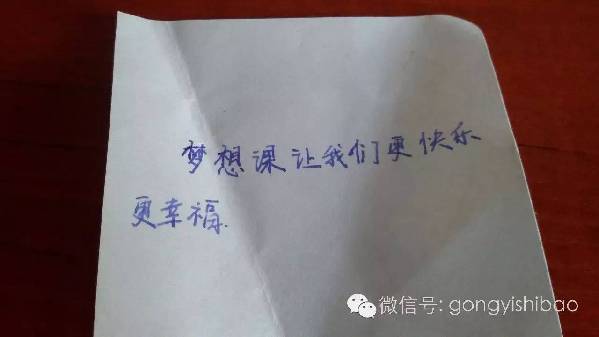 梦想课让我们更快乐
更幸福.
微信号: gongyishibao